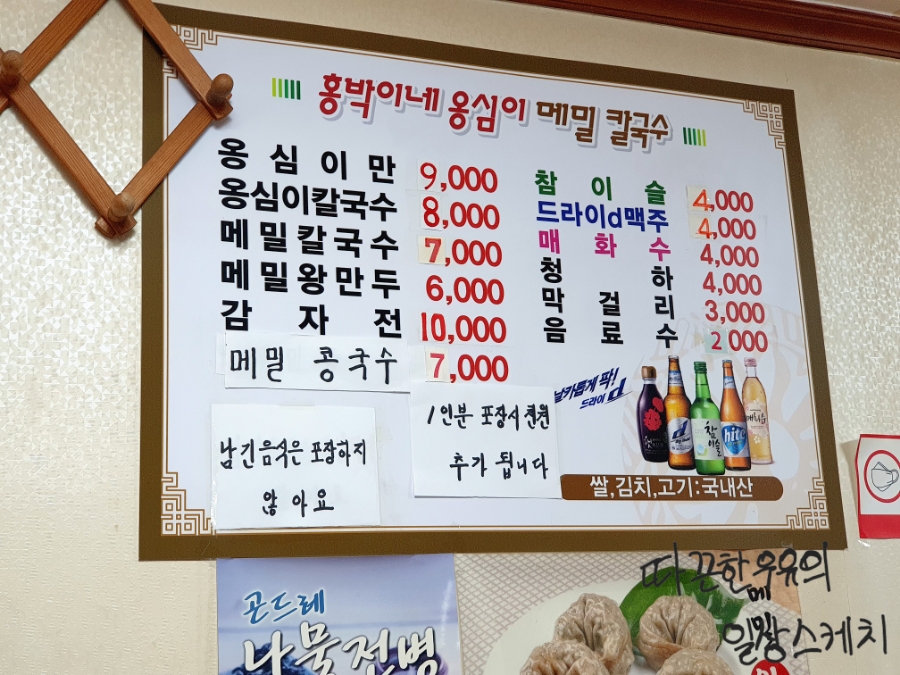 홍박이네 옹심이 메밀 칼국수
옹심이만 9,000
옹심이칼국수 8,000
메밀칼국수 7,000
메밀왕만두 6,000
감자전 10,000
메밀 콩국수 7,000
참이슬 4,000
드라이d맥주 4,000
매화수 4,000
청하 4,000
막걸리 3,000
음료수 2 000
날카롭게 팍!
드라이 d
d
참이슬
hite
남긴음식은 포장하지
않아요
1인분 포장시 천원
추가 됩니다
쌀,김치,고기:국내산
곤드레
나물전병
따끈한우유의
일상스케치